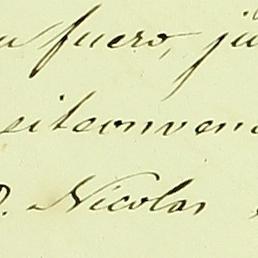 fuero, ju
sitconven
D. Nicolas